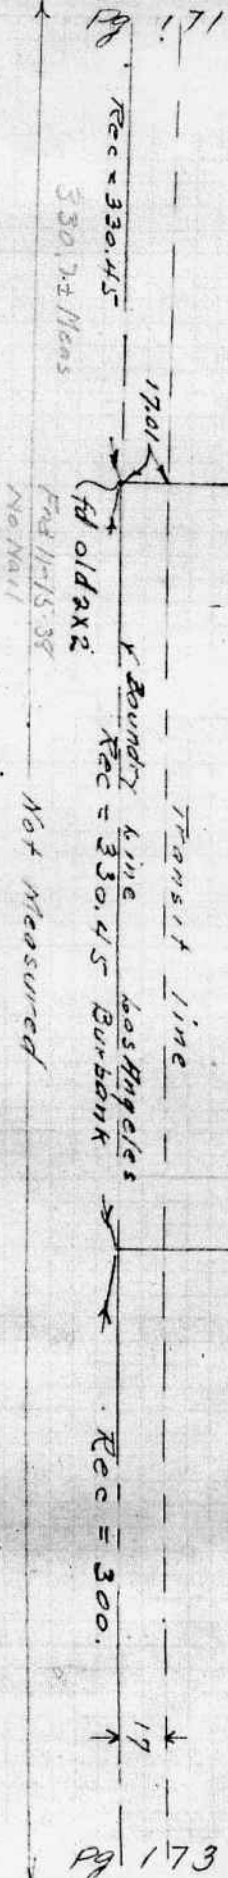 Pg 171
Rec = 330.45
330.7± Meas
17.01
fd old 2x2
Fnd 11-15-38
No Nail
Not Measured
Transit line
Boundry Line Los Angeles
Rec = 330.45 Burbank
Rec = 300.
17
Pg 173